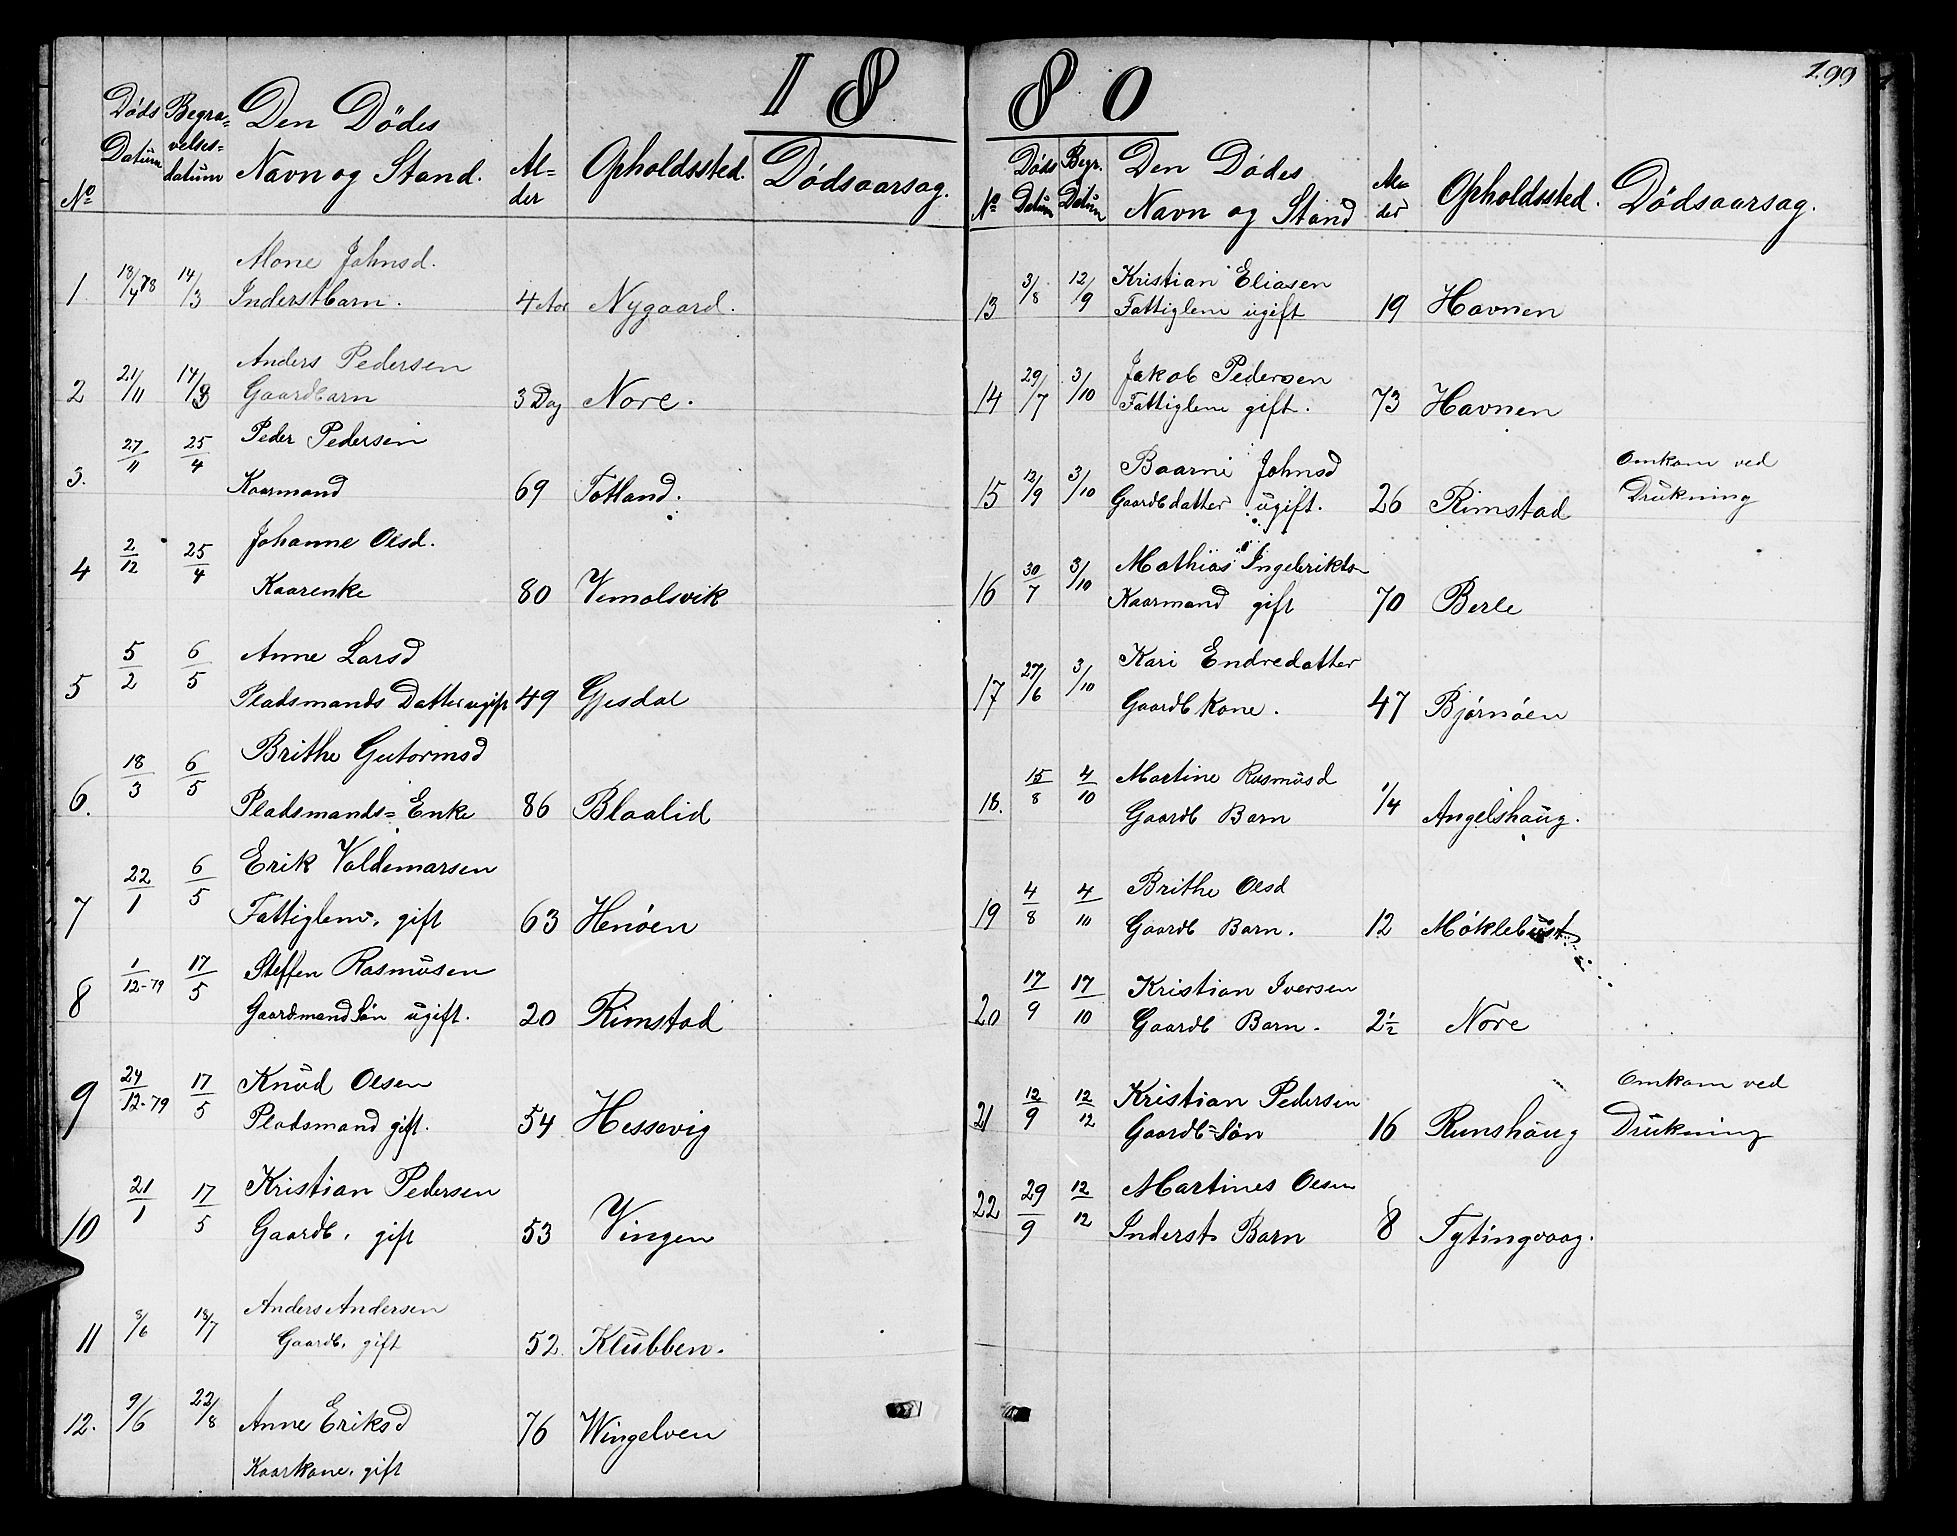 1880
199
No Døds Datum Begravelses= datum Den Dødes Navn og Stand. Al= der Opholdssted. Dødsaarsag.
1. 18/4 78 14/3 Alone Johnsd.
Inderstbarn. 4 Aar Nygaard.
2 21/11 14/3 Anders Pedersen
Gaardbarn 3 Dag Nore.
3. 27/11 25/4 Peder Pedersen
Kaarmand 69 Totland.
4 2/12 25/4 Johanne Olsd.
Kaarenke 80 Vemolsvik
5 5/2 6/5 Anne Larsd
Pladsmands Datter ugift 49 Gjesdal
6. 18/3 6/5 Brithe Gutormsd
Pladsmands= Enke 86 Blaalid
7 22/1 6/5 Erik Valdemarsen
Fattiglem, gift 63 Henøen
8 1/12-79 17/5 Steffen Rasmusen
Gaardmand Søn ugift. 20 Rimstad
9 24/12-79 17/5 Knud Olsen
Pladsmand gift. 54 Hessevig
10 21/1 17/5 Kristian Pedersen
Gaardb. gift 53 Vingen
11 3/6 18/7 Anders Andersen
Gaardb. gift 52. Klubben.
12. 9/6 22/8 Anne Eriksd 76 Wingelven
Kaarkone, gift
No Døds Datum Begr. Datum Den Dødes Navn og Stand Al= der Opholdssted. Dødsaarsag.
13 3/8 12/9 Kristian Eliasen
Fattiglem ugift 19 Havnen
14 29/7 3/10 Jakob Pedersen
Fattiglem gift. 73 Havnen
15 12/9 3/10 Baarni Johnsd Omkom ved
Gaardbdatter ugift. 26 Rimstad Drukning
16 30/7 3/10 Mathias Ingebrikts
Kaarmand gift 70 Berle
17 27/6 3/10 Kari Endredatter
Gaardb Kone. 47 Bjørnøen
18. 15/8 4/10 Martine Rasmusd
Gaardb Barn 1/4 Angelshaug.
19 4/8 4/10 Brithe Olsd
Gaardb Barn. 12 Møklebust
20 17/9 17/10 Kristian Iversen
Gaardb Barn. 2 1/2 Nore
21 12/9 12/12 Kristian Pedersen Omkom ved
Gaardb=Søn 16 Runshaug Drukning
22 29/9 12/12 Martines Olsen
Inderst Barn 8 Tytingvaag.